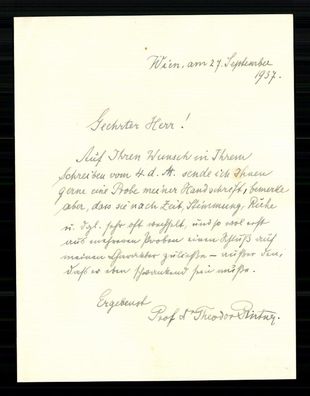 Wien, am 27. September
1937.
Geehrter Herr!
Auf Ihren Wunsch in Ihrem
Schreiben vom 4. d. M. sende ich Ihnen
gerne eine Probe meiner Handschrift, bemerke
aber, dass sie nach Zeit, Stimmung, Ruhe
u. dgl. sehr oft wechselt, und so wol erst
aus mehreren Proben einen Schluß auf
meinen Charakter zuließe – außer den,
daß er eben schwankend sein muße.
Ergebenst
Prof. Dr Theodor